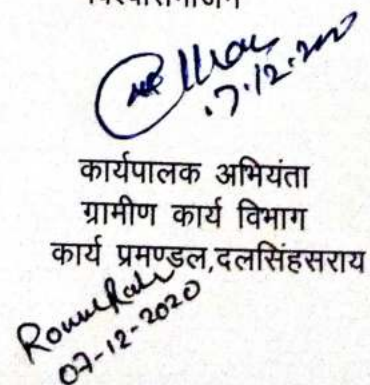 विश्वासभाजन
7.12.2020
कार्यपालक अभियंता
ग्रामीण कार्य विभाग
कार्य प्रमण्डल,दलसिंहसराय
07-12-2020